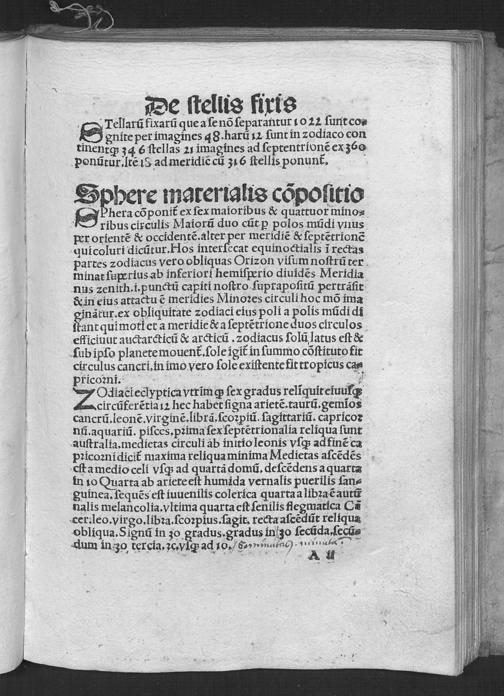 De stellis fixis
STellarū fixarū que a se nō separantur 1022 sunt co-
gnite per imagines 48. harū 12 sunt in zodiaco con
tinentꝙ 346 stellas 21 imagines ad septentrionē ex 360
ponūtur. Itē 15 ad meridiē cū 316 stellis ponunt̄.
Sphere materialis cōpositio
SPhera cōponit̄ ex sex maioribus & quattuor mino-
ribus circulis Maiorū duo cūt ꝑ polos mūdi vnus
per orientē & occidentē. alter per meridiē & septētrionē
qui coluri dicūtur. Hos intersecat equinoctialis ī rectas
partes zodiacus vero obliquas Orizon visum nostrū ter
minat superius ab inferiori hemisperio diuidēs Meridia
nus zenith .i. punctū capiti nostro suprapositū pertrāsit
& in eius attactu ē meridies Minores circuli hoc mō ima
ginātur. ex obliquitate zodiaci eius poli a polis mūdi di
stant qui moti et a meridie & a septētrione duos circulos
efficiuut auctarcticū & arcticū . zodiacus solū latus est &
sub ipso planete mouent̄. sole igit̄ in summo cōstituto fit
circulus cancri, in imo vero sole existente fit tropicus ca-
pricorni.
ZOdiaci eclyptica vtrimꝙ sex gradus relīquit eiuusꝙ
circūferētia 12 hec habet signa arietē. taurū. gemīos
cancrū. leonē. virginē. librā. scorpiū. sagittariū. capricor
nū. aquariū. pisces. prima sex septētrionalia reliqua sunt
australia. medietas circuli ab initio leonis vsꝙ ad finē ca
pricorni dicit̄ maxima reliqua minima Medietas ascēdēs
est a medio celi vsꝙ ad quartā domū, descēdens a quarta
in 10 Quarta ab ariete est humida vernalis puerilis san-
guinea. sequēs est iuuenilis colerica quarta a libra ē autū
nalis melancolia. vltima quarta est senilis flegmatica Cā
cer. leo. virgo. libra. scorpius. sagit. recta ascēdūt reliqua
obliqua. Signū in 30 gradus. gradus in 30 secūda. secū-
dum in 30 tercia. ⁊c. vsꝙ ad 10.
A ii